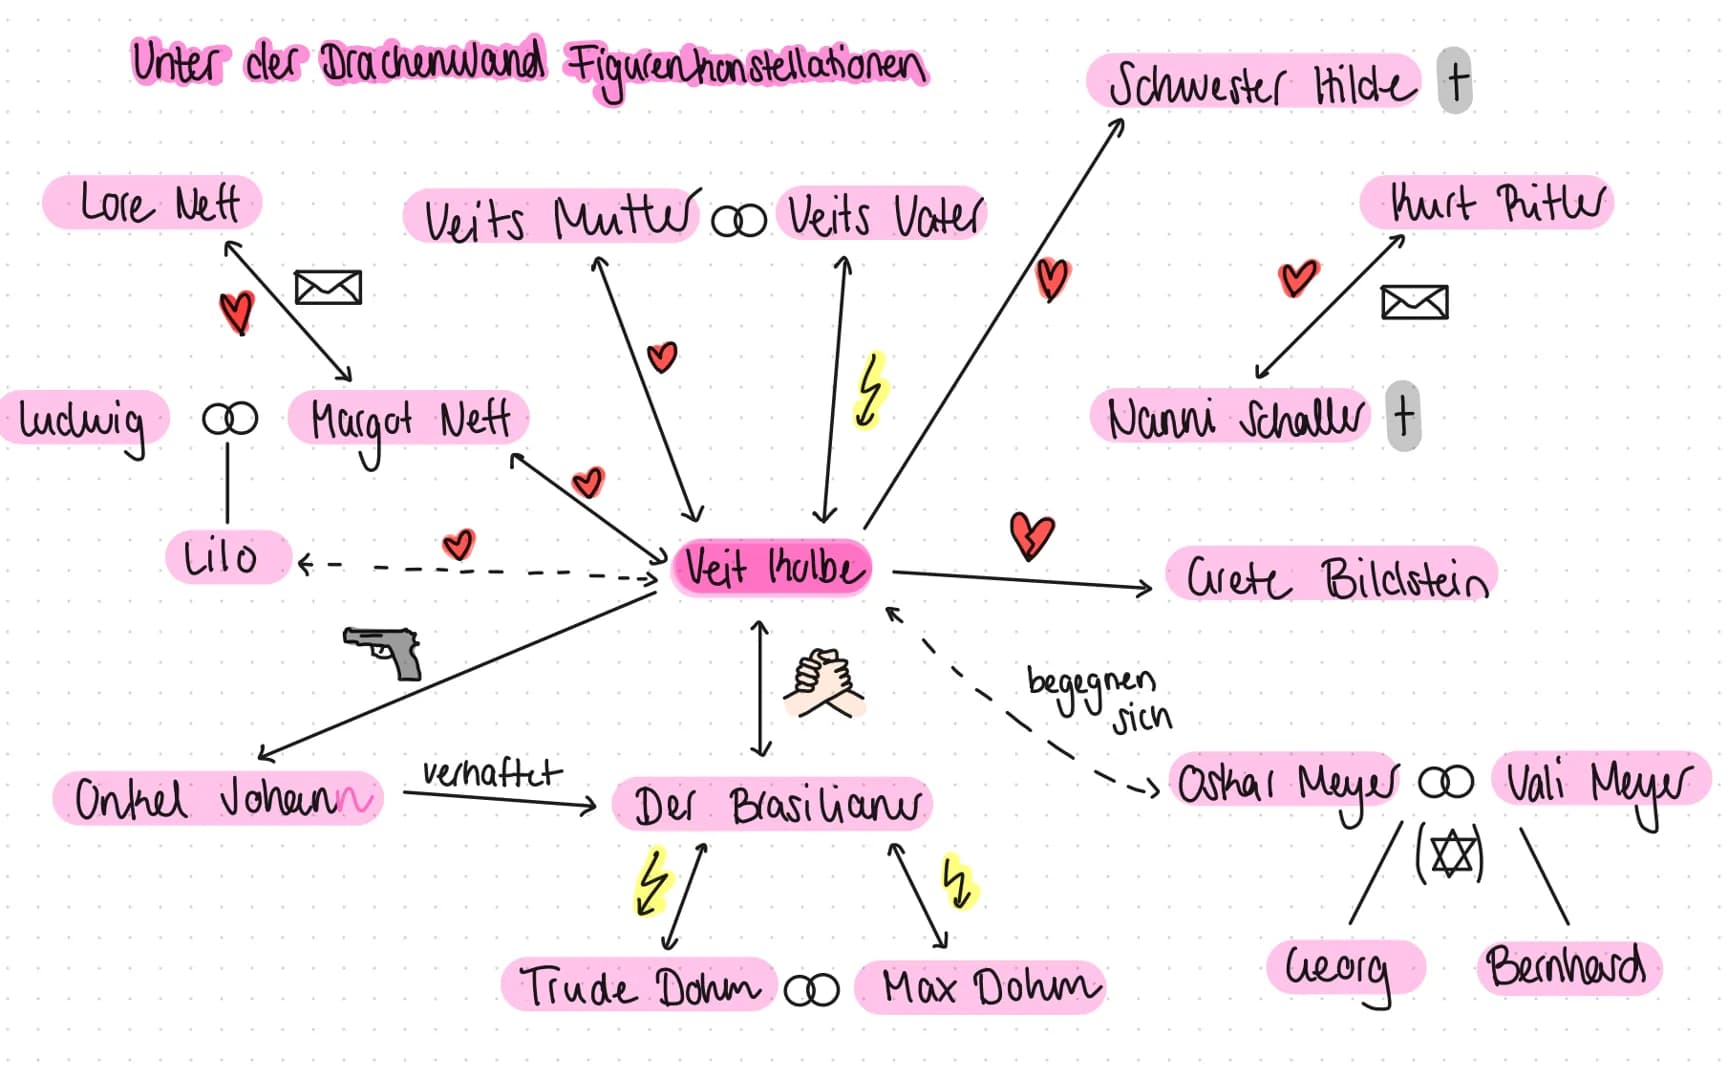 Unter der Drachenwand Figurenkonstellationen
Schwester Hilde †
Lore Neff
Veits Mutter
Veits Vater
Kurt Ritler
Ludwig
Margot Neff
Nanni Schaller †
Lilo
Veit Kolbe
Grete Bildstein
begegnen
sich
Onkel Johann
verhaftet
Der Brasilianer
Oskar Meyer
Vali Meyer
Georg
Bernhard
Trude Dohm
Max Dohm